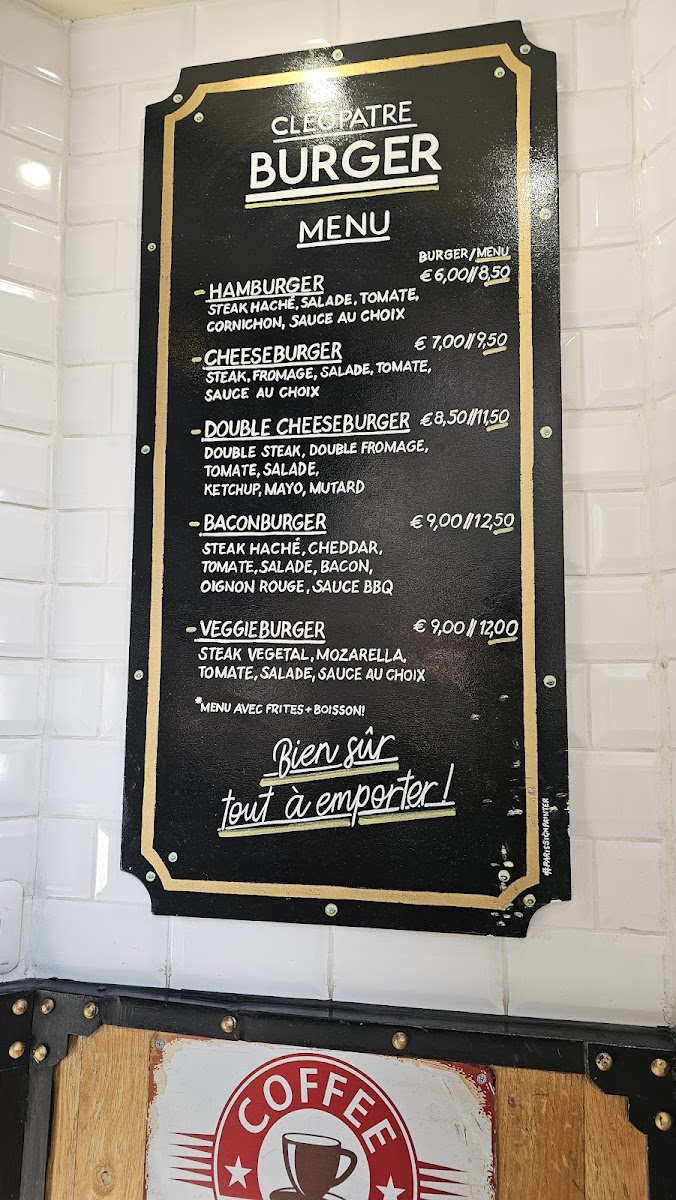 CLÉOPATRE
BURGER
MENU
BURGER/MENU
- HAMBURGER €6,00//8,50
STEAK HACHÉ, SALADE, TOMATE,
CORNICHON, SAUCE AU CHOIX
- CHEESEBURGER € 7,00//9,50
STEAK, FROMAGE, SALADE, TOMATE,
SAUCE AU CHOIX
- DOUBLE CHEESEBURGER €8,50//11,50
DOUBLE STEAK, DOUBLE FROMAGE,
TOMATE, SALADE,
KETCHUP, MAYO, MUTARD
- BACONBURGER € 9,00//12,50
STEAK HACHÉ, CHEDDAR,
TOMATE, SALADE, BACON,
OIGNON ROUGE, SAUCE BBQ
- VEGGIEBURGER € 9,00//12,00
STEAK VEGETAL, MOZARELLA,
TOMATE, SALADE, SAUCE AU CHOIX
*MENU AVEC FRITES + BOISSON!
Bien sûr
tout à emporter!
#PARISSIGNPAINTER
COFFEE